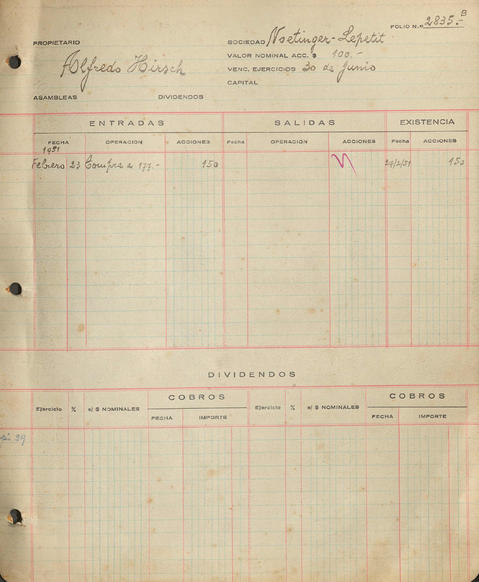 B
FOLIO N.º 2835.-
PROPIETARIO
SOCIEDAD Noetinger-Lepetit
Alfredo Hirsch
VALOR NOMINAL ACC. $ 100.-
VENC. EJERCICIOS 30 de Junio
CAPITAL
ASAMBLEAS DIVIDENDOS
ENTRADAS SALIDAS EXISTENCIA
FECHA OPERACION ACCIONES Fecha OPERACION ACCIONES Fecha ACCIONES
1951
Febrero 23 Compra a 177.- 150 24/2/51 150
DIVIDENDOS
COBROS COBROS
Ejercicio % s/ $ NOMINALES FECHA IMPORTE Ejercicio % s/ $ NOMINALES FECHA IMPORTE